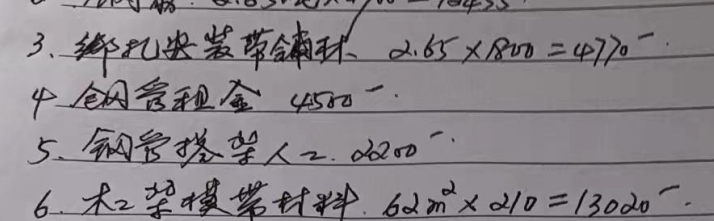 3. 绑扎安装带铺材 2.65×1800=4770-.
4 钢管租金 4500-.
5. 钢管搭架人工. 2200-.
6. 木工架模带材料. 62m²×210=13020-.